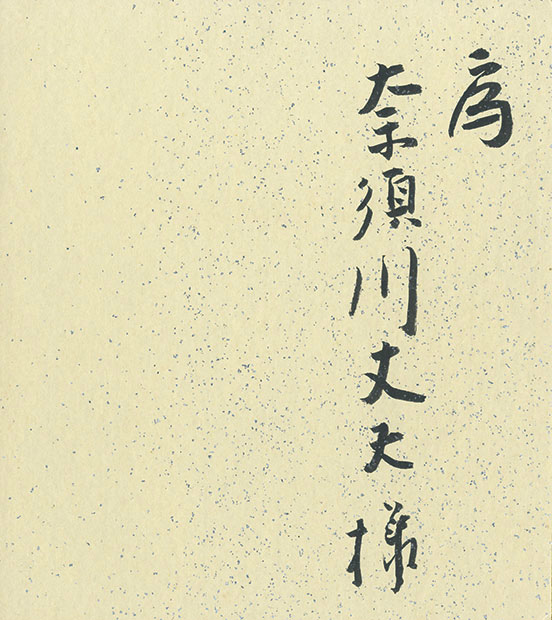 為
奈須川丈夫様